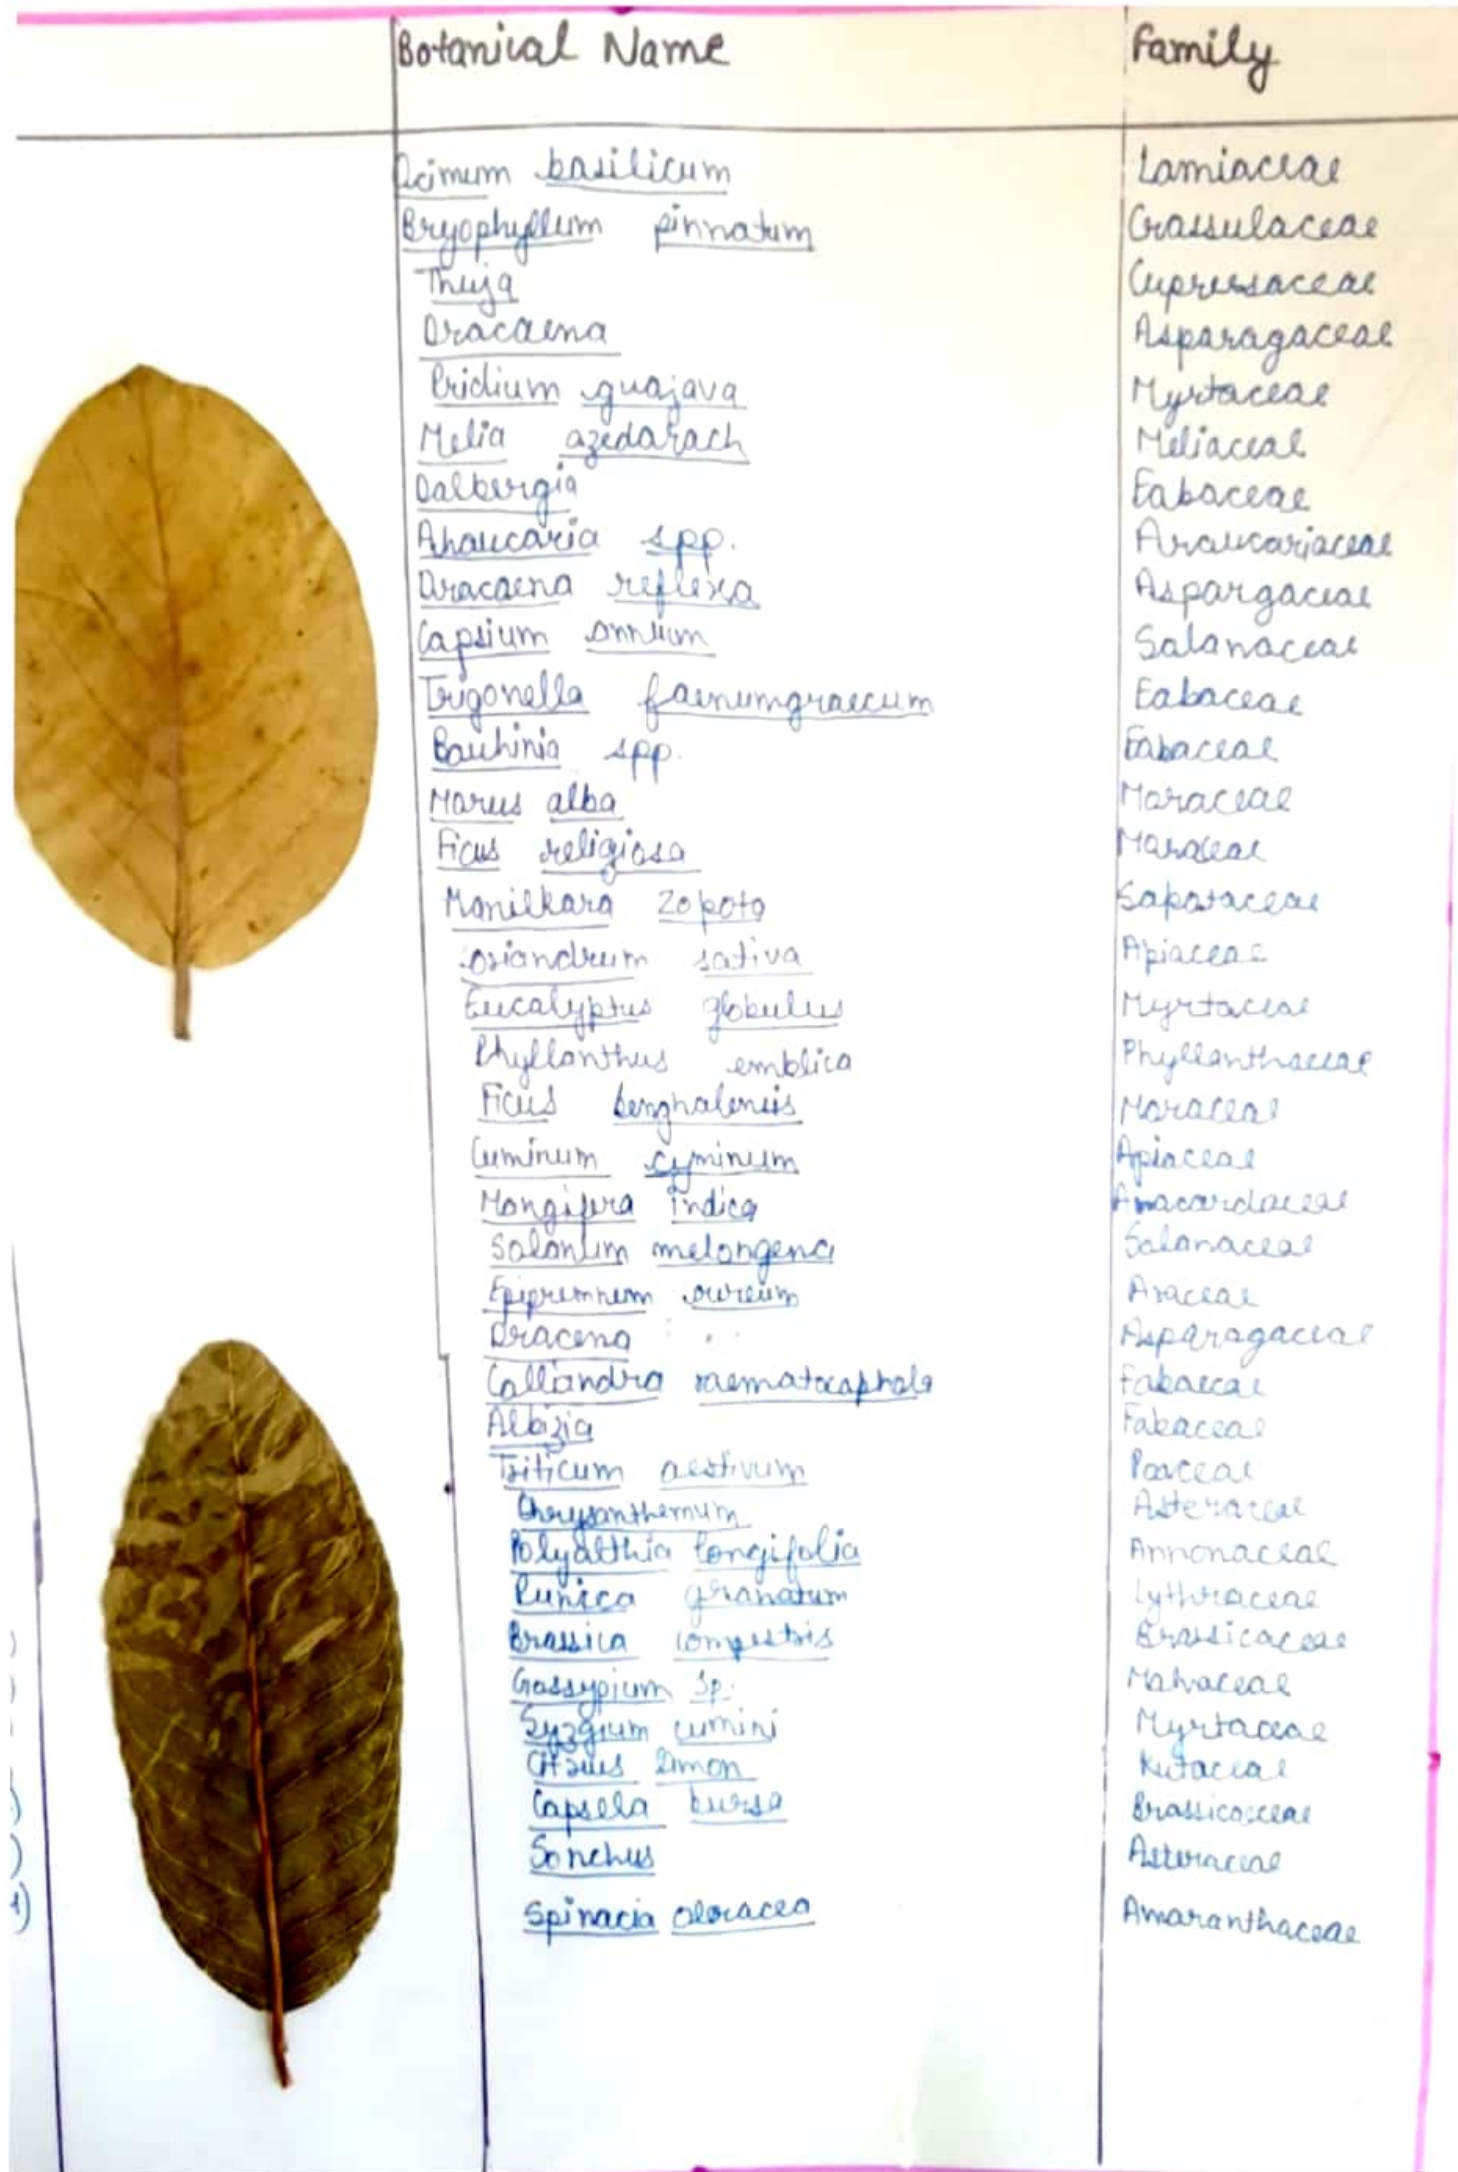 Botanical Name Family
Ocimum basilicum Lamiaceae
Bryophyllum pinnatum Crassulaceae
Thuja Cupressaceae
Dracaena Asparagaceae
Pridium guajava Myrtaceae
Melia azedarach Meliaceae
Dalbergia Fabaceae
Ahaucaria spp. Araucariaceae
Dracaena reflexa Aspargaceae
Capsium annum Salanaceae
Trigonella faenumgraecum Fabaceae
Bauhinia spp. Fabaceae
Morus alba Moraceae
Ficus religiosa Moraceae
Manilkara Zopota Sapotaceae
coriandrum sativa Apiaceae
Eucalyptus globulus Myrtaceae
Phyllanthus emblica Phyllanthaceae
Ficus benghalensis Moraceae
Cuminum cyminum Apiaceae
Mangifera indica Anacardaceae
Solanum melongena Solanaceae
Epipremnem aureum Araceae
Dracena Asparagaceae
Calliandra raematocaphala Fabaceae
Albizia Fabaceae
Triticum aestivum Poaceae
Chrysanthemum Asteraceae
Polyalthia longifolia Annonaceae
Punica granatum Lythraceae
Brassica compestris Brassicaceae
Gossypium sp. Malvaceae
Syzgium cumini Myrtaceae
Citrus limon Rutaceae
Capsela bursa Brassicaceae
Sonchus Asteraceae
Spinacia oleracea Amaranthaceae